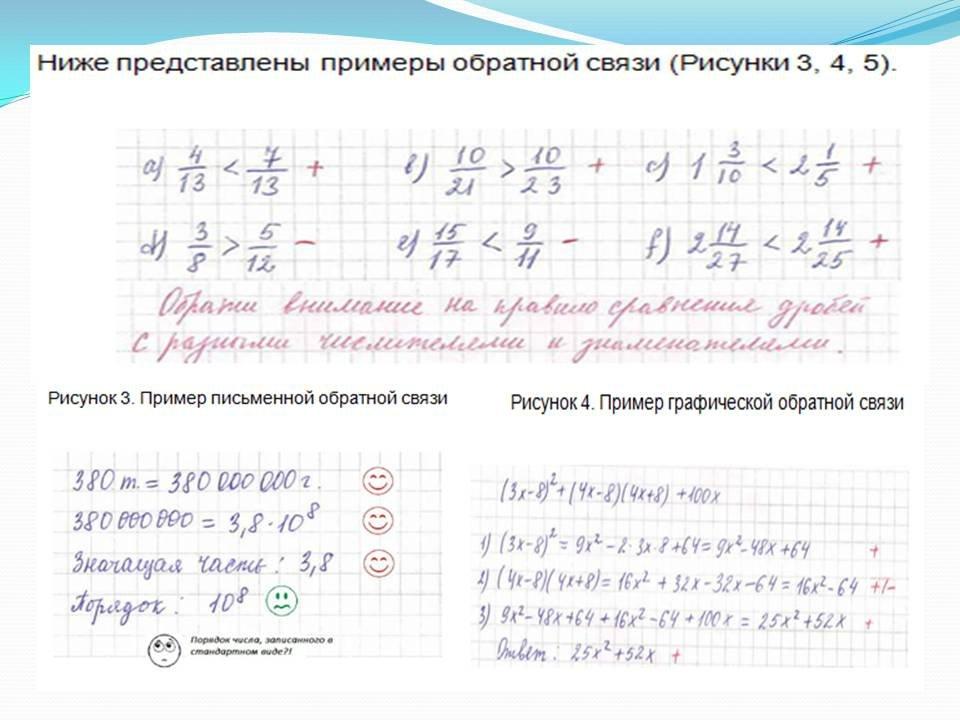 Ниже представлены примеры обратной связи (Рисунки 3, 4, 5).
a) 4/13 < 7/13 + b) 10/21 > 10/23 + c) 1 3/10 < 2 1/5 +
d) 3/8 > 5/12 − e) 15/17 < 9/11 − f) 2 14/27 < 2 14/25 +
Обрати внимание на правило сравнения дробей
с разными числителями и знаменателями.
Рисунок 3. Пример письменной обратной связи
Рисунок 4. Пример графической обратной связи
380 т. = 380 000 000 г.
380 000 000 = 3,8 · 10⁸
Значащая часть: 3,8
Порядок: 10⁸
Порядок числа, записанного в
стандартном виде?!
(3x-8)²+(4x-8)(4x+8) +100x
1) (3x-8)² = 9x² - 2·3x·8 + 64 = 9x² - 48x + 64 +
2) (4x-8)(4x+8) = 16x² + 32x - 32x - 64 = 16x² - 64 +/-
3) 9x² - 48x + 64 + 16x² - 64 + 100x = 25x² + 52x +
Ответ: 25x² + 52x +